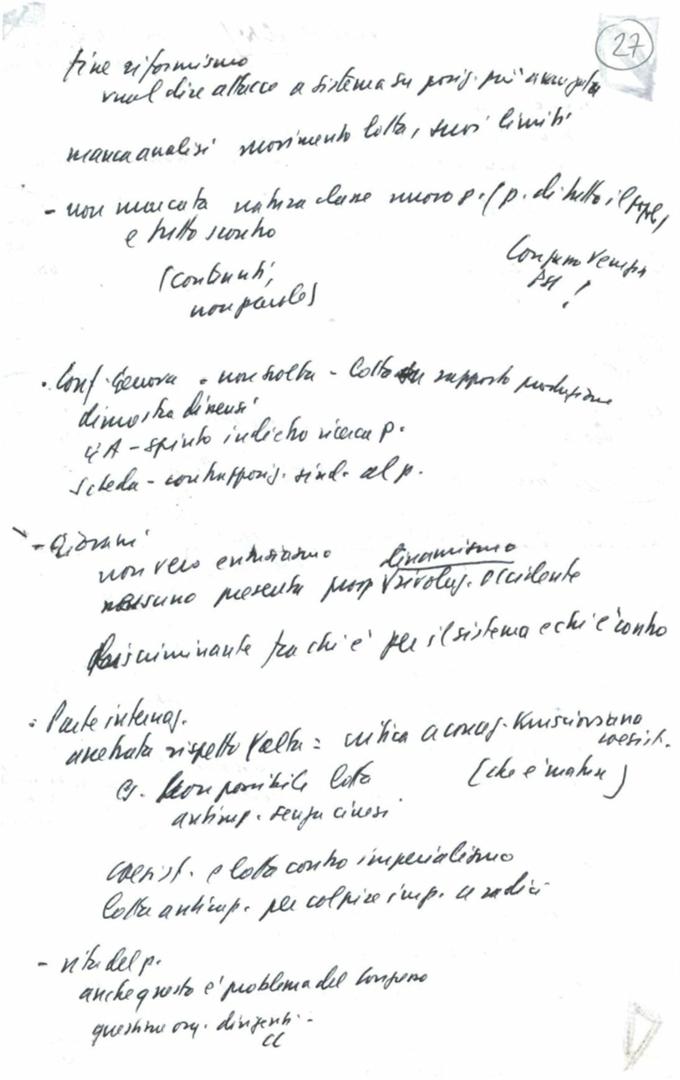 27
fine riformismo
vuol dire attacco a sistema su posiz. più avanzata
manca analisi movimento lotta, suoi limiti
- non marcata natura classe nuovo p. (p. di tutto il popolo)
e tutto scontro
(contenuti,
non parole)
Congresso Venezia
PSI !
. Conf. Genova = non svolta - lotta su rapporto produzione
dimostra dissensi
- spinto indietro ricerca p.
scheda - contrappos. sind. al p.
- Giovani
non vero entusiasmo dinamismo
nessuno presenta prosp rivoluz. occidente
discriminante fra chi è per il sistema e chi è contro
. Parte internaz.
arretrata rispetto Yalta = critica a concez. kruscioviana
coesist.
non possibile lotta (che è matura)
antimp. senza cinesi
coesist. e lotta contro imperialismo
lotta antimp. per colpire imp. a radici
- vita del p.
anche questo è problema del Congresso
questione org. dirigenti -
CC